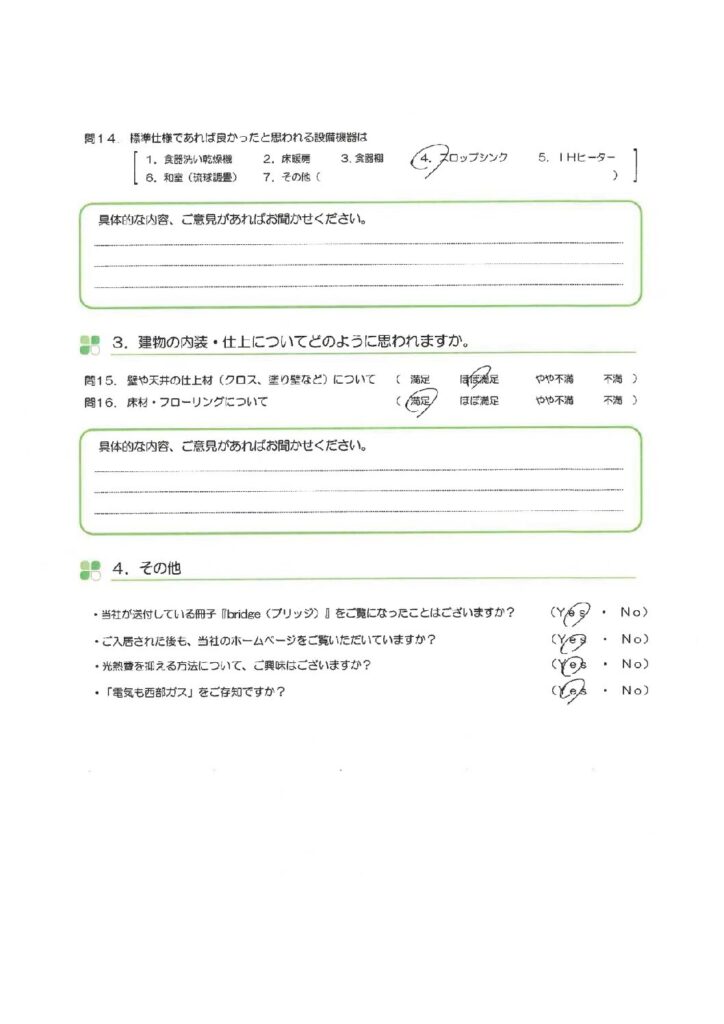 問14. 標準仕様であれば良かったと思われる設備機器は
1. 食器洗い乾燥機 2. 床暖房 3. 食器棚 4. スロップシンク 5. IHヒーター
6. 和室(琉球調畳) 7. その他( )
具体的な内容、ご意見があればお聞かせください。
3. 建物の内装・仕上についてどのように思われますか。
問15. 壁や天井の仕上材(クロス、塗り壁など)について ( 満足 ほぼ満足 やや不満 不満 )
問16. 床材・フローリングについて ( 満足 ほぼ満足 やや不満 不満 )
具体的な内容、ご意見があればお聞かせください。
4. その他
・当社が送付している冊子『bridge(ブリッジ)』をご覧になったことはございますか? (Yes ・ No)
・ご入居された後も、当社のホームページをご覧いただいていますか? (Yes ・ No)
・光熱費を抑える方法について、ご興味はございますか? (Yes ・ No)
・「電気も西部ガス」をご存知ですか? (Yes ・ No)